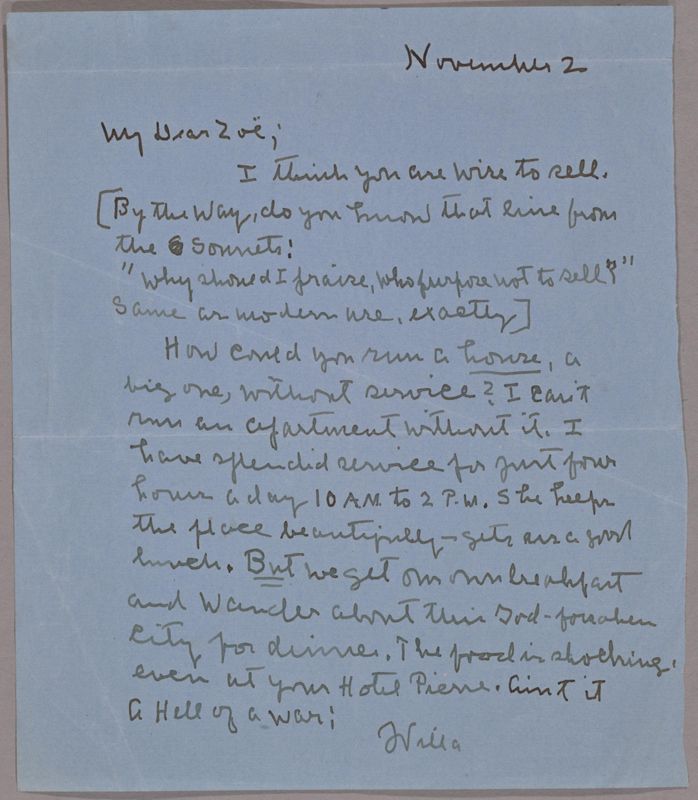 November 2
My Dear Zoë;
I think you are wise to sell.
[By the way, do you know that line from
the Sonnets:
"Why should I praise, who purpose not to sell?"
Same as modern use, exactly]
How could you run a house, a
big one, without service? I can't
run an apartment without it. I
have splendid service for just four
hours a day 10 A.M. to 2 P.M. She keeps
the place beautifully—gets us a good
lunch. But we get our own breakfast
and Wander about this God-forsaken
City for dinner. The food is shocking.
even at your Hotel Pierre. Ain't it
a Hell of a war;
Willa